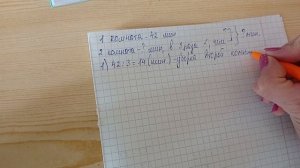 1 комната - 42 мин
2 комната - ? мин, в 3 раза <, чем ? мин.
1) 42:3=14 (мин) - уборка второй комн